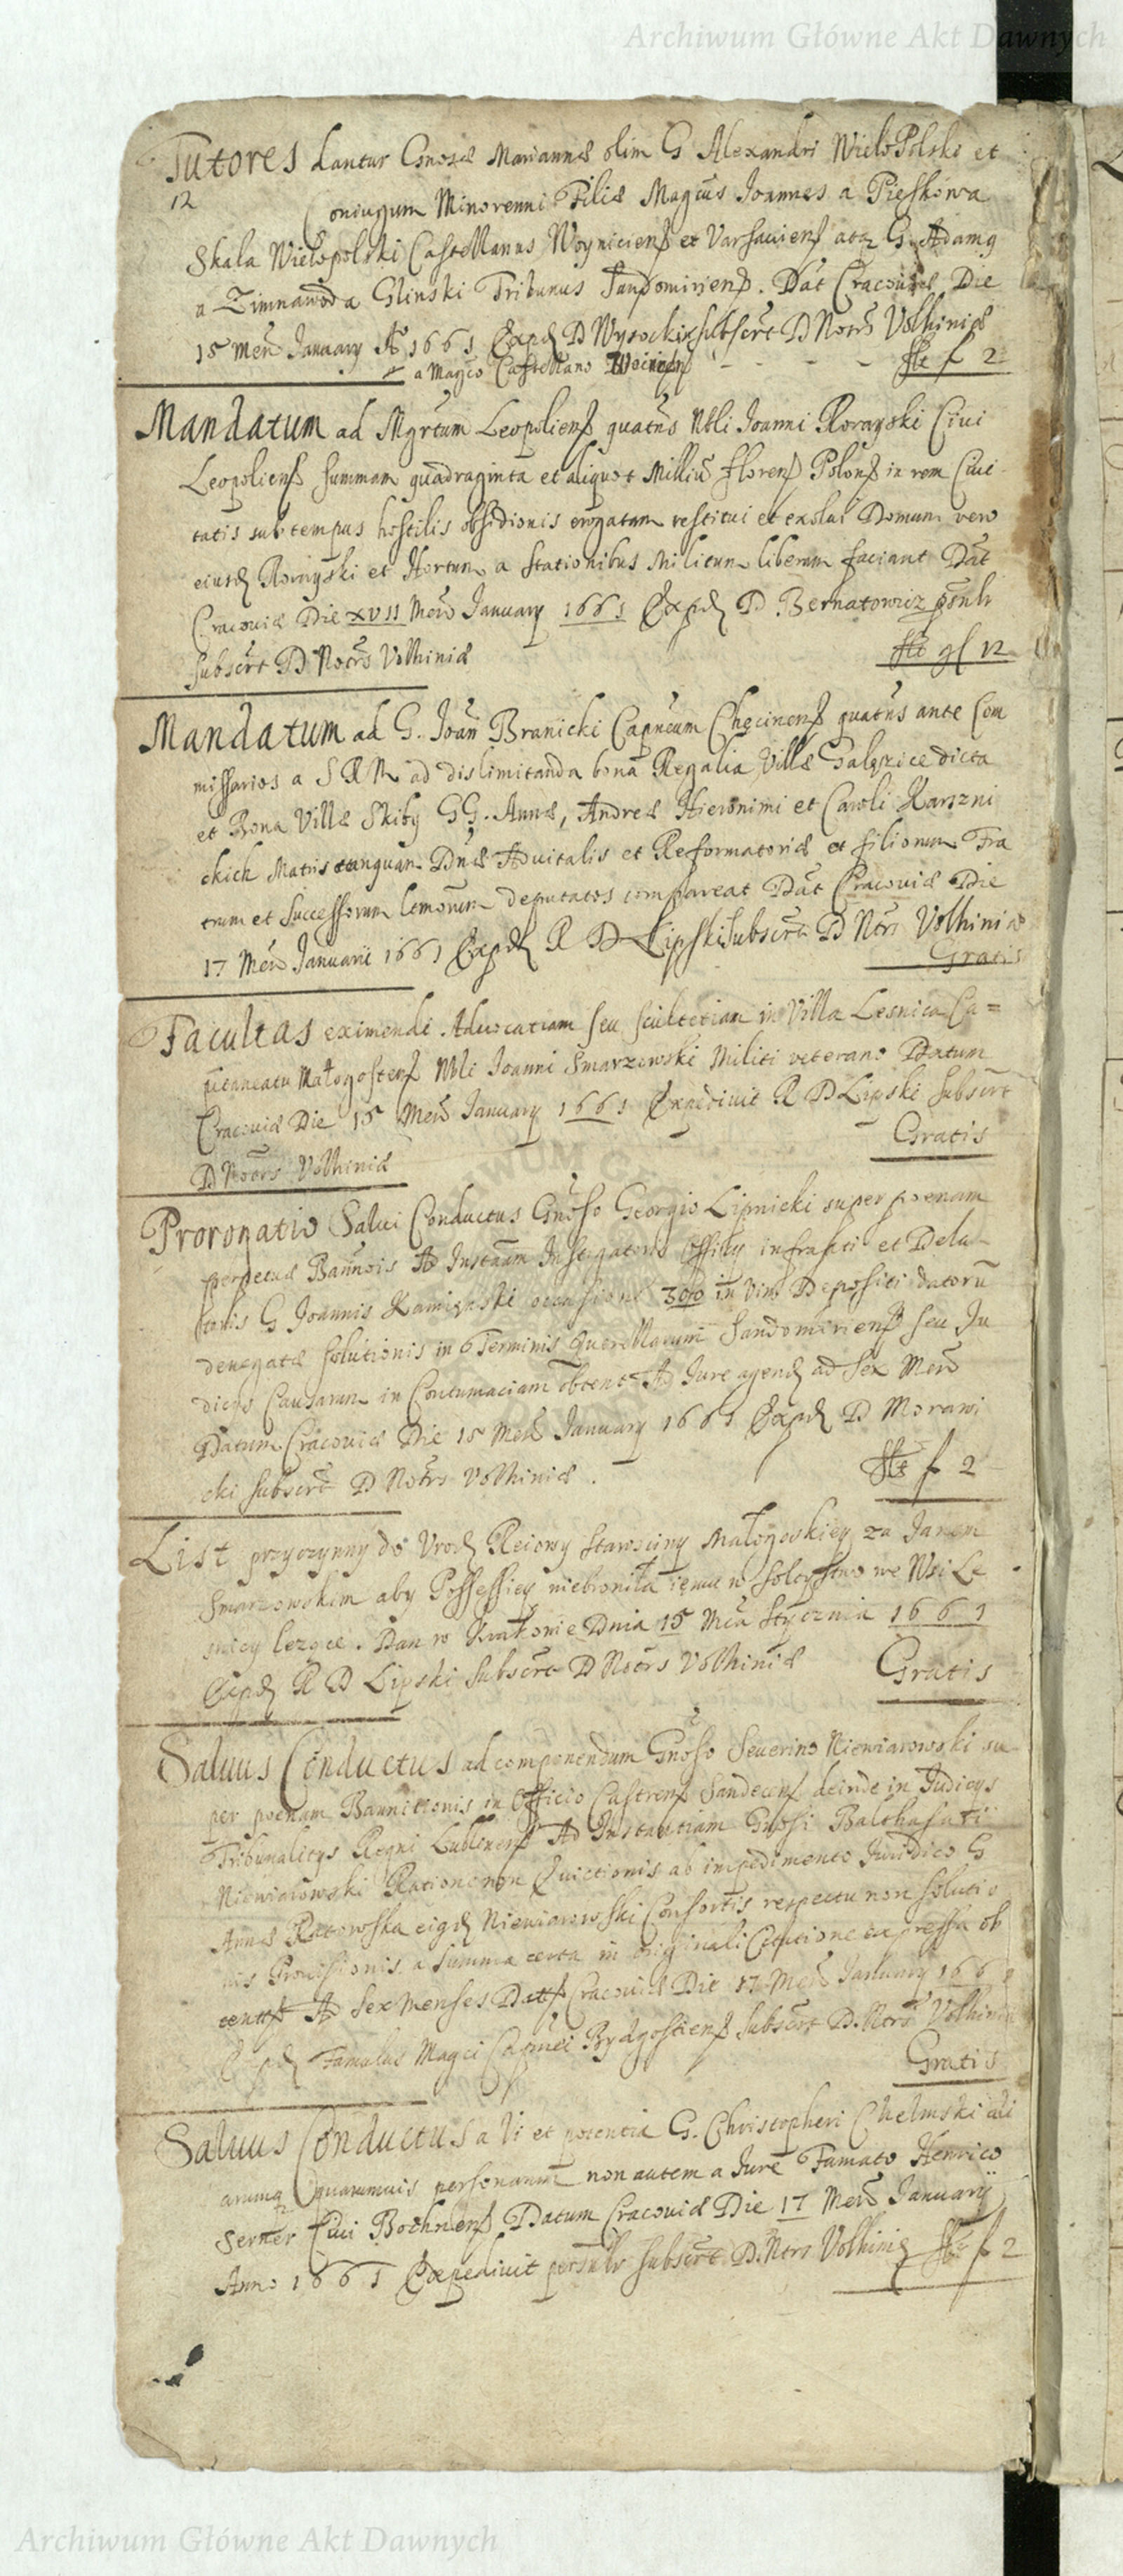 Archiwum Główne Akt Dawnych
Tutores dantur Gnosæ Mariannæ olim G Alexandri WieloPolski et
12
Coniugum Minorenni Filiæ Magcus Joannes a Pieskowa
Skala Wielopolski Castellanus Woynicienß et Varsauienß atq G. Adamg
a Zimnawoda Glinski Tribunus Sandomirienß. Dat Cracouiæ Die
15 Men January Ao 1661 Exped D Wysocki subscrt D Notrs Volhiniæ
a Magco Castellano - - - - fl f 2
Mandatum ad Mgrtum Leopolienß quatns Nbli Joanni Roragski Ciui
Leopolienß summam quadraginta et aliquot Milliu florenß Polonß in rem Ciui
tatis sub tempus hostilis obsidionis erogatam restitui et exolui Domum vero
eiusd Roragski et Hortum a stationibus Militum liberam faciant Dat
Cracouiæ Die XVII Men January 1661 Exped D Bernatowicz
subscrt D Notrs Volhiniæ gl 12
Mandatum ad G. Joan Branicki Capneum Checinenß quatns ante Com
missarios a S R M ad dislimitanda bona Regalia Villæ Galęzice dicta
et Bona Villæ Skiby GG. Annæ, Andreæ Hieronimi et Caroli Karszni
ckich Matris tanquam Dnæ Aduitalis et Reformatoriæ et filiorum Fra
trum et Successorum deputatos compareat Dat Cracouiæ Die
17 Men Januarii 1661 Exped R D Lipski subscrt D Ntrs Volhiniæ
Gratis
Facultas eximendi Aduocatiam seu scultetiam in Villa Lesnica Ca=
pitaneatu Małogostenß Nbli Joanni Smarzewski Militi veterano Datum
Cracouiæ Die 15 Men January 1661 Expediuit R D Lipski subscrt
D Notrs Volhiniæ Gratis
Prorogatio Salui Conductus Gnoso Georgio Lipnicki super poenam
perpetuæ Bannois Ad Instam Instigatoris Officy infrapti et Dela
toris G Joannis Kaminski occasione 300 in vim Depositi datoru
denegatæ solutionis in Terminis Querellarum Sandomirienß seu Ju
dicys Causarum in Contumaciam obtent Ad Jure agend ad sex Men
Datum Cracouiæ Die 15 Men January 1661 Exped D Morawi
cki subscrt D Notrs Volhiniæ. f 2
List przyczynny do Urod Reiowy Starosciny Małogoskiey za Janem
Smarzowskim aby Possessiey niebroniła iemu w Solectwo we Wsi Le
snicy lezące. Dan w Krakowie Dnia 15 Mca Stycznia 1661
Exped R D Lipski Subscrt D Notrs Volhiniæ Gratis
Saluus Conductus ad componendum Gnoso Seuerino Niewiarowski su
per poenam Bannitionis in Officio Castrenß Sandecenß deinde in Judicys
Tribunalitys Regni Lublinenß Ad Instantiam Gnosi Balthasari
Niewiarowski Ratione non Euictionis ab impedimento Juridico G
Annæ Ratowska eigd Niewiarowski Consortis respectu non solutio
nis Prouisionis a summa certa in originali Citatione expressa ob
tentß Ad Sex Menses Datß Cracouiæ Die 17 Men January 1661
Exped Famulus Magci Capnei Bydgostienß subscrt D. Ntrs Volhiniæ
Gratis
Saluus Conductus a Vi et potentia G. Christopheri Chelmski ali
arumq quarumuis personarum non autem a Jure Famato Henrico
Serner Ciui Bochnenß Datum Cracouiæ Die 17 Men January
Anno 1661 Expediuit subscrt D. Ntrs Volhiniæ f 2
Archiwum Główne Akt Dawnych